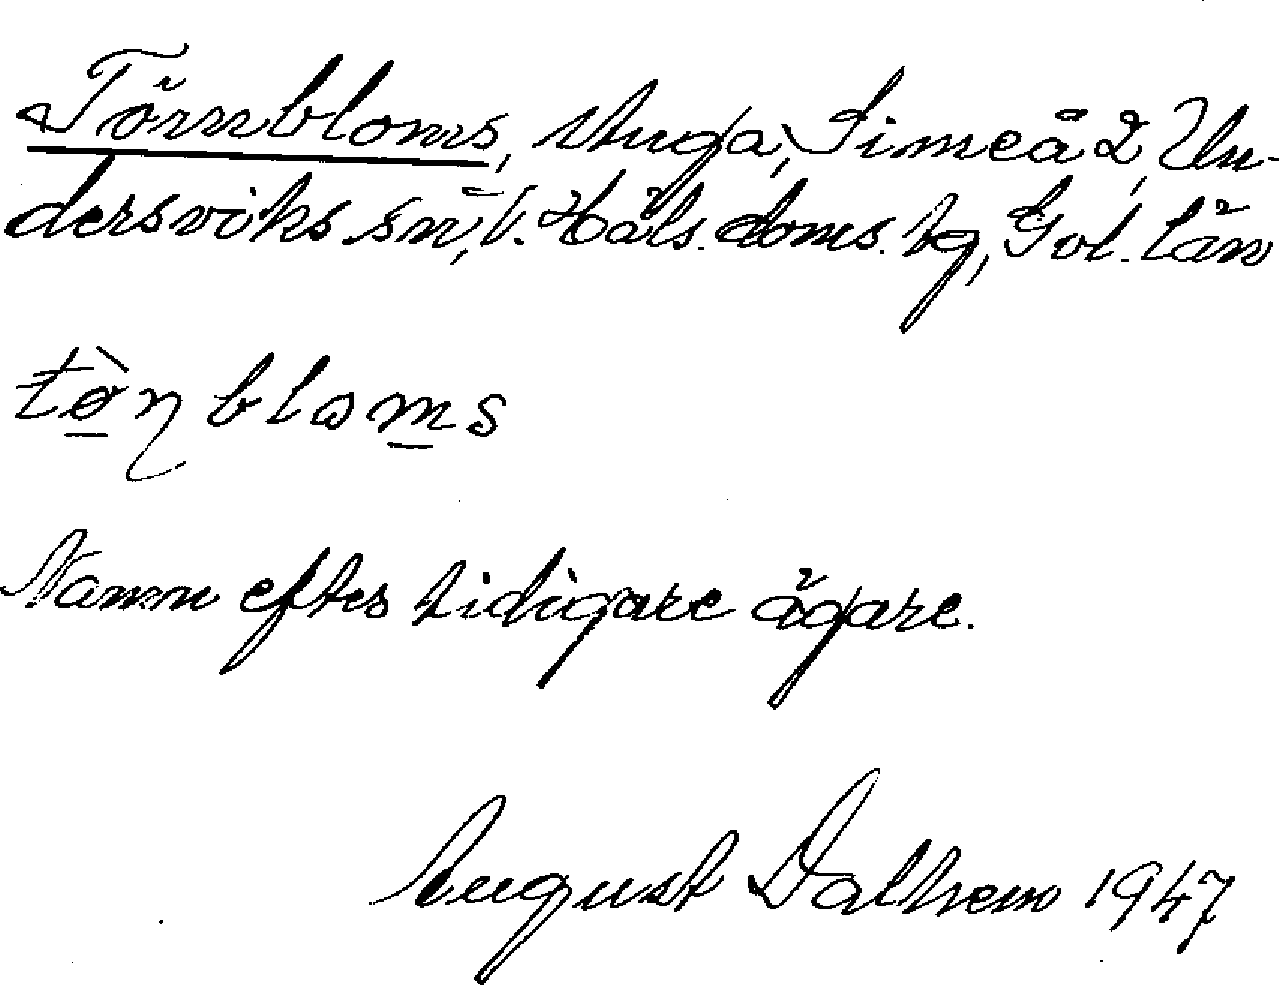 Törnbloms, stuga, Simeå 2, Un-
dersviks sn, V. Häls. doms. tg, Gvl. län
tö̀ɳbloms
Namn efter tidigare ägare.
August Dalhem 1947